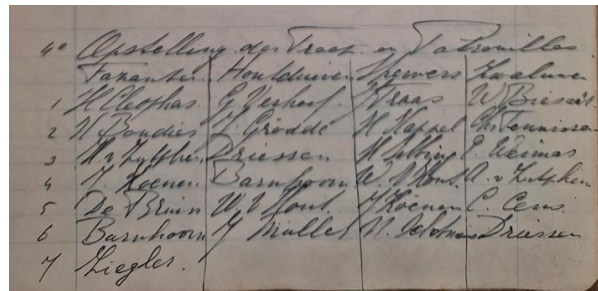 4e Opstelling der Troep en Patrouilles
Fazanten Houtduiven Sperwers Zwaluwen
1 H Cleophas. G Verhoef. Kraas W
2 N Boudies J Grodde H Kappel Chr Teunissen
3 H v Zutphen Driessen H E. Weimar
4 J. Koenen Barnhoorn W. v Hout. A v Zutphen
5 De Bruin W. v Hout. J Koenen C. Cens.
6 Barnhoorn J Muller N. Driessen
7 Ziegler.